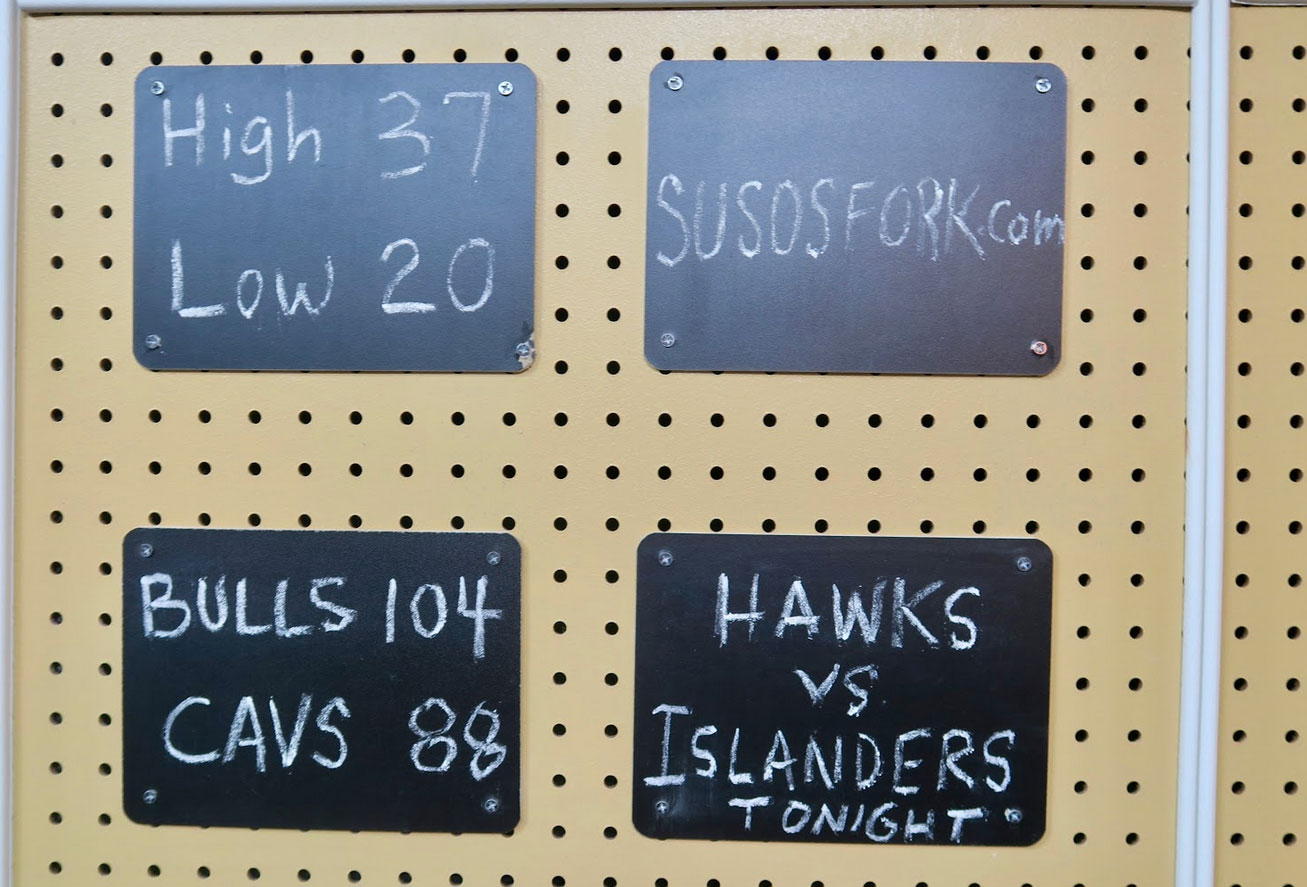 High 37
Low 20
SUSOSFORK.com
BULLS 104
CAVS 88
HAWKS
VS
ISLANDERS
TONIGHT